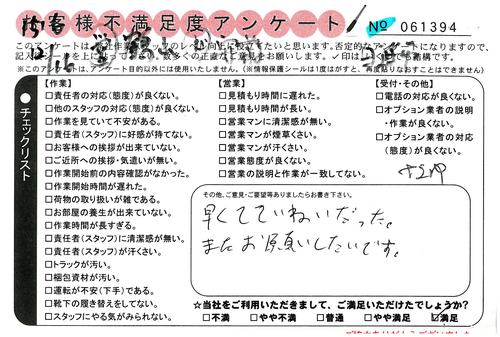 お客様不満足度アンケート
№ 061394
※このアンケートは、アンケート目的以外には使用いたしません。(※情報保護シールは1度がすと、再度貼りなおすことはできません)
チェックリスト
【作業】
□責任者の対応(態度)が良くない。
□他のスタッフの対応(態度)が良くない。
□作業を見ていて不安がある。
□責任者(スタッフ)に好感が持てない。
□お客様への挨拶が出来ていない。
□ご近所への挨拶・気遣いが無い。
□作業開始前の内容確認がなかった。
□作業開始時間が遅れた。
□荷物の取り扱いが雑である。
□お部屋の養生が出来ていない。
□作業時間が長すぎる。
□責任者(スタッフ)に清潔感が無い。
□責任者(スタッフ)が汗くさい。
□トラックが汚い。
□梱包資材が汚い。
□運転が不安(下手)である。
□靴下の履き替えをしてない。
□スタッフにやる気がみられない。
【営業】
□見積もり時間に遅れた。
□見積もり時間が長い。
□営業マンに清潔感が無い。
□営業マンが煙草くさい。
□営業マンが汗くさい。
□営業態度が良くない。
□営業の説明と作業が一致してない。
【受付・その他】
□電話の対応が良くない。
□オプション業者の説明
・作業が良くない。
□オプション業者の対応
(態度)が良くない。
その他、ご意見・ご要望等ありましたらお書き下さい。
早くてていねいだった。
またお願いしたいです。
☆当社をご利用いただきまして、ご満足いただけたでしょうか?
□不満 □やや不満 □普通 □やや満足 ☑満足